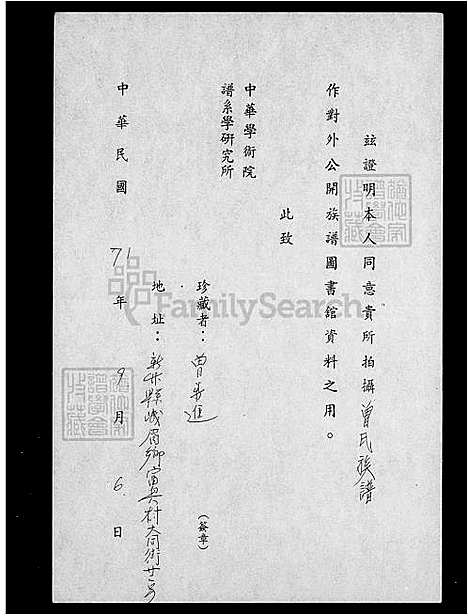 茲證明本人同意貴所拍攝曾氏族譜
作對外公開族譜圖書館資料之用。
此致
中華學術院
譜系學研究所
珍藏者：曾 進
(簽章)
地址：新竹縣峨眉鄉富興村大同街廿二号
中華民國 71 年 9 月 6 日
FamilySearch